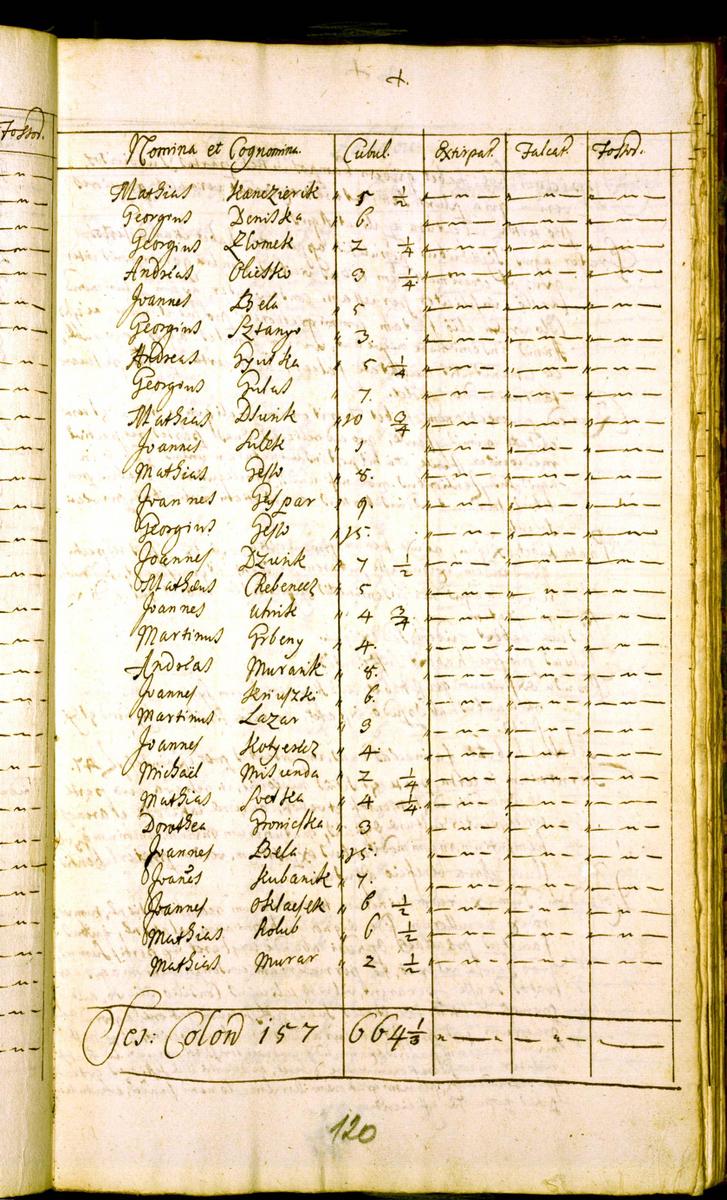 Fossor.
Nomina et Cognomina. Cubul. Extirpat. Falcat. Fossor.
Mathias Kanizierik " 5 1/2 " — " — " — " —
Georgius Deniska " 6.
Georgius Zlomek " 2 1/4
Andreas Oliesko " 3 1/4
Joannes Bela " 5
Georgius Sztanyo " 3.
Andreas Hyurka " 5 1/4
Georgius Gulas " 7.
Mathias Dsurik " 10 3/4
Joannes Sulek " 1
Mathias Gesso " 8.
Joannes Gaspar " 9.
Georgius Gesso " 15.
Joannes Dzurik " 7 1/2
Mathæus Chebenecz " 5
Joannes Uhrik " 4 3/4
Martinus Grbeny " 4.
Andreas Murank " 8.
Joannes Kriuszki " 6.
Martinus Lazar " 3
Joannes Kotyercz " 4
Michaël Misurda " 2 1/4
Mathias Svetska " 4 1/4
Dorothea Hronieska " 3
Joannes Bela " 15.
Joañes Kubanik " 7.
Joannes Oklasek " 6 1/2
Mathias Holub " 6 1/2
Mathias Murar " 2 1/2
Ses: Colon 157 664 1/3
120